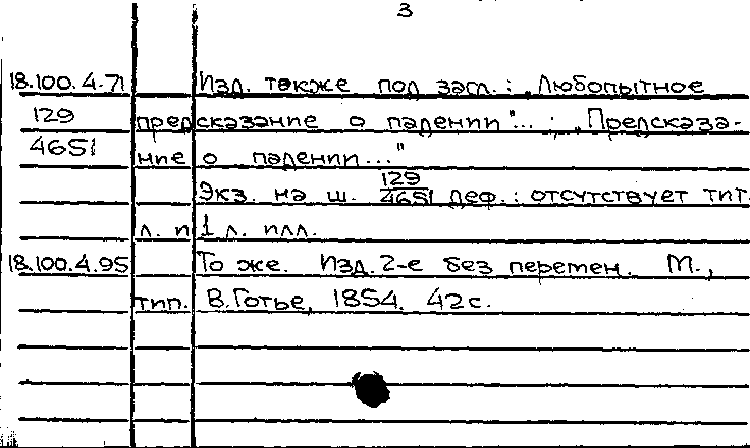 3
18.100.4.71 Изд. также под загл.: „Любопытное
129 предсказание о падении"...; „Предсказа-
4651 ние о падении..."
Экз. на ш. 129/4651 деф.: отсутствует тит.
л. и 1 л. илл.
18.100.4.95 То же. Изд. 2-е без перемен. М.,
тип. В. Готье, 1854. 42 с.